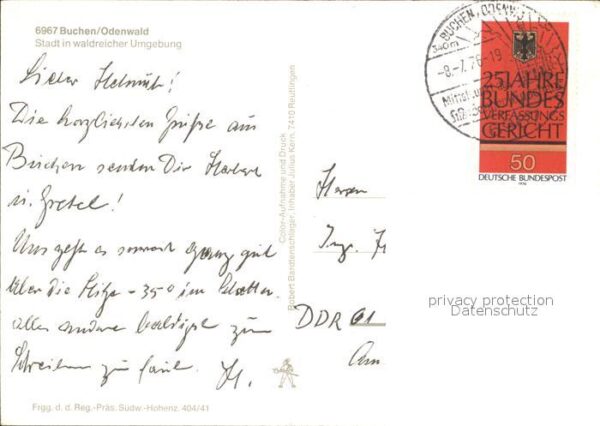 6967 Buchen/Odenwald
Stadt in waldreicher Umgebung
Lieber Helmut!
Die herzlichsten Grüße aus
Buchen senden Dir Herbert
u. Gretel!
Uns geht es soweit ganz gut
über die Hitze - 35° im Schatten
alles andere zum
Schreiben zu faul.
Frgg. d. d. Reg.-Präs. Südw.-Hohenz. 404/41
Color-Aufnahme und Druck
Robert Bardtenschlager, Inhaber Julius Kern, 7410 Reutlingen
Herrn
Ing.
DDR
BUCHEN, ODENW
-8.-7.76-19
25 JAHRE
BUNDES
VERFASSUNGS
GERICHT
50
DEUTSCHE BUNDESPOST
1976
privacy protection
Datenschutz